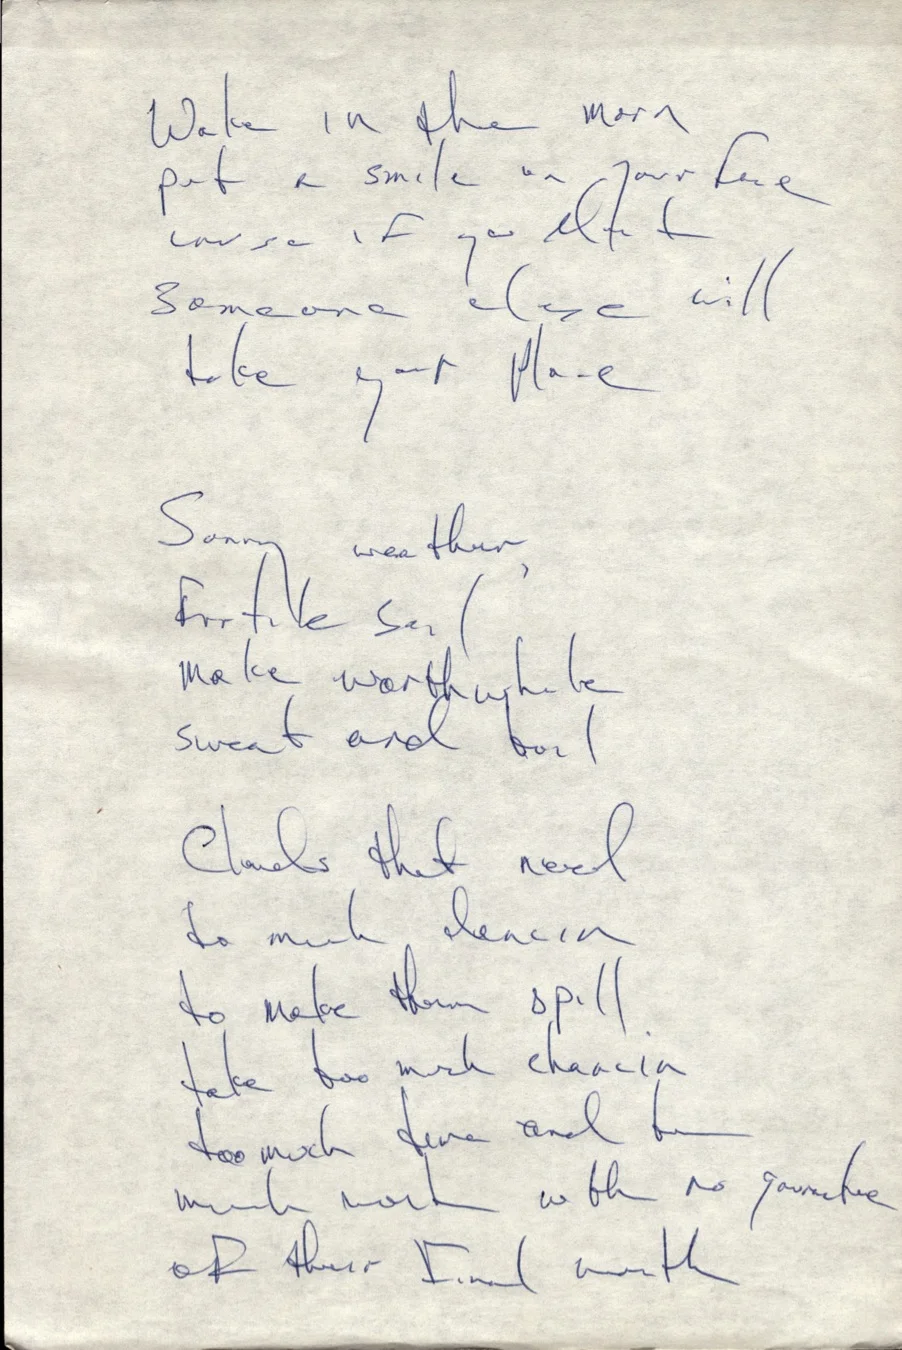 Wake in the morn
put a smile on your face
cause if you don't
someone else will
take your place
Sunny weather,
Fertile soil
make worthwhile
sweat and toil
Clouds that need
to much dancin
to make them spill.
take too much chancin
too much time and to
much work with no guarantee
of their Final worth